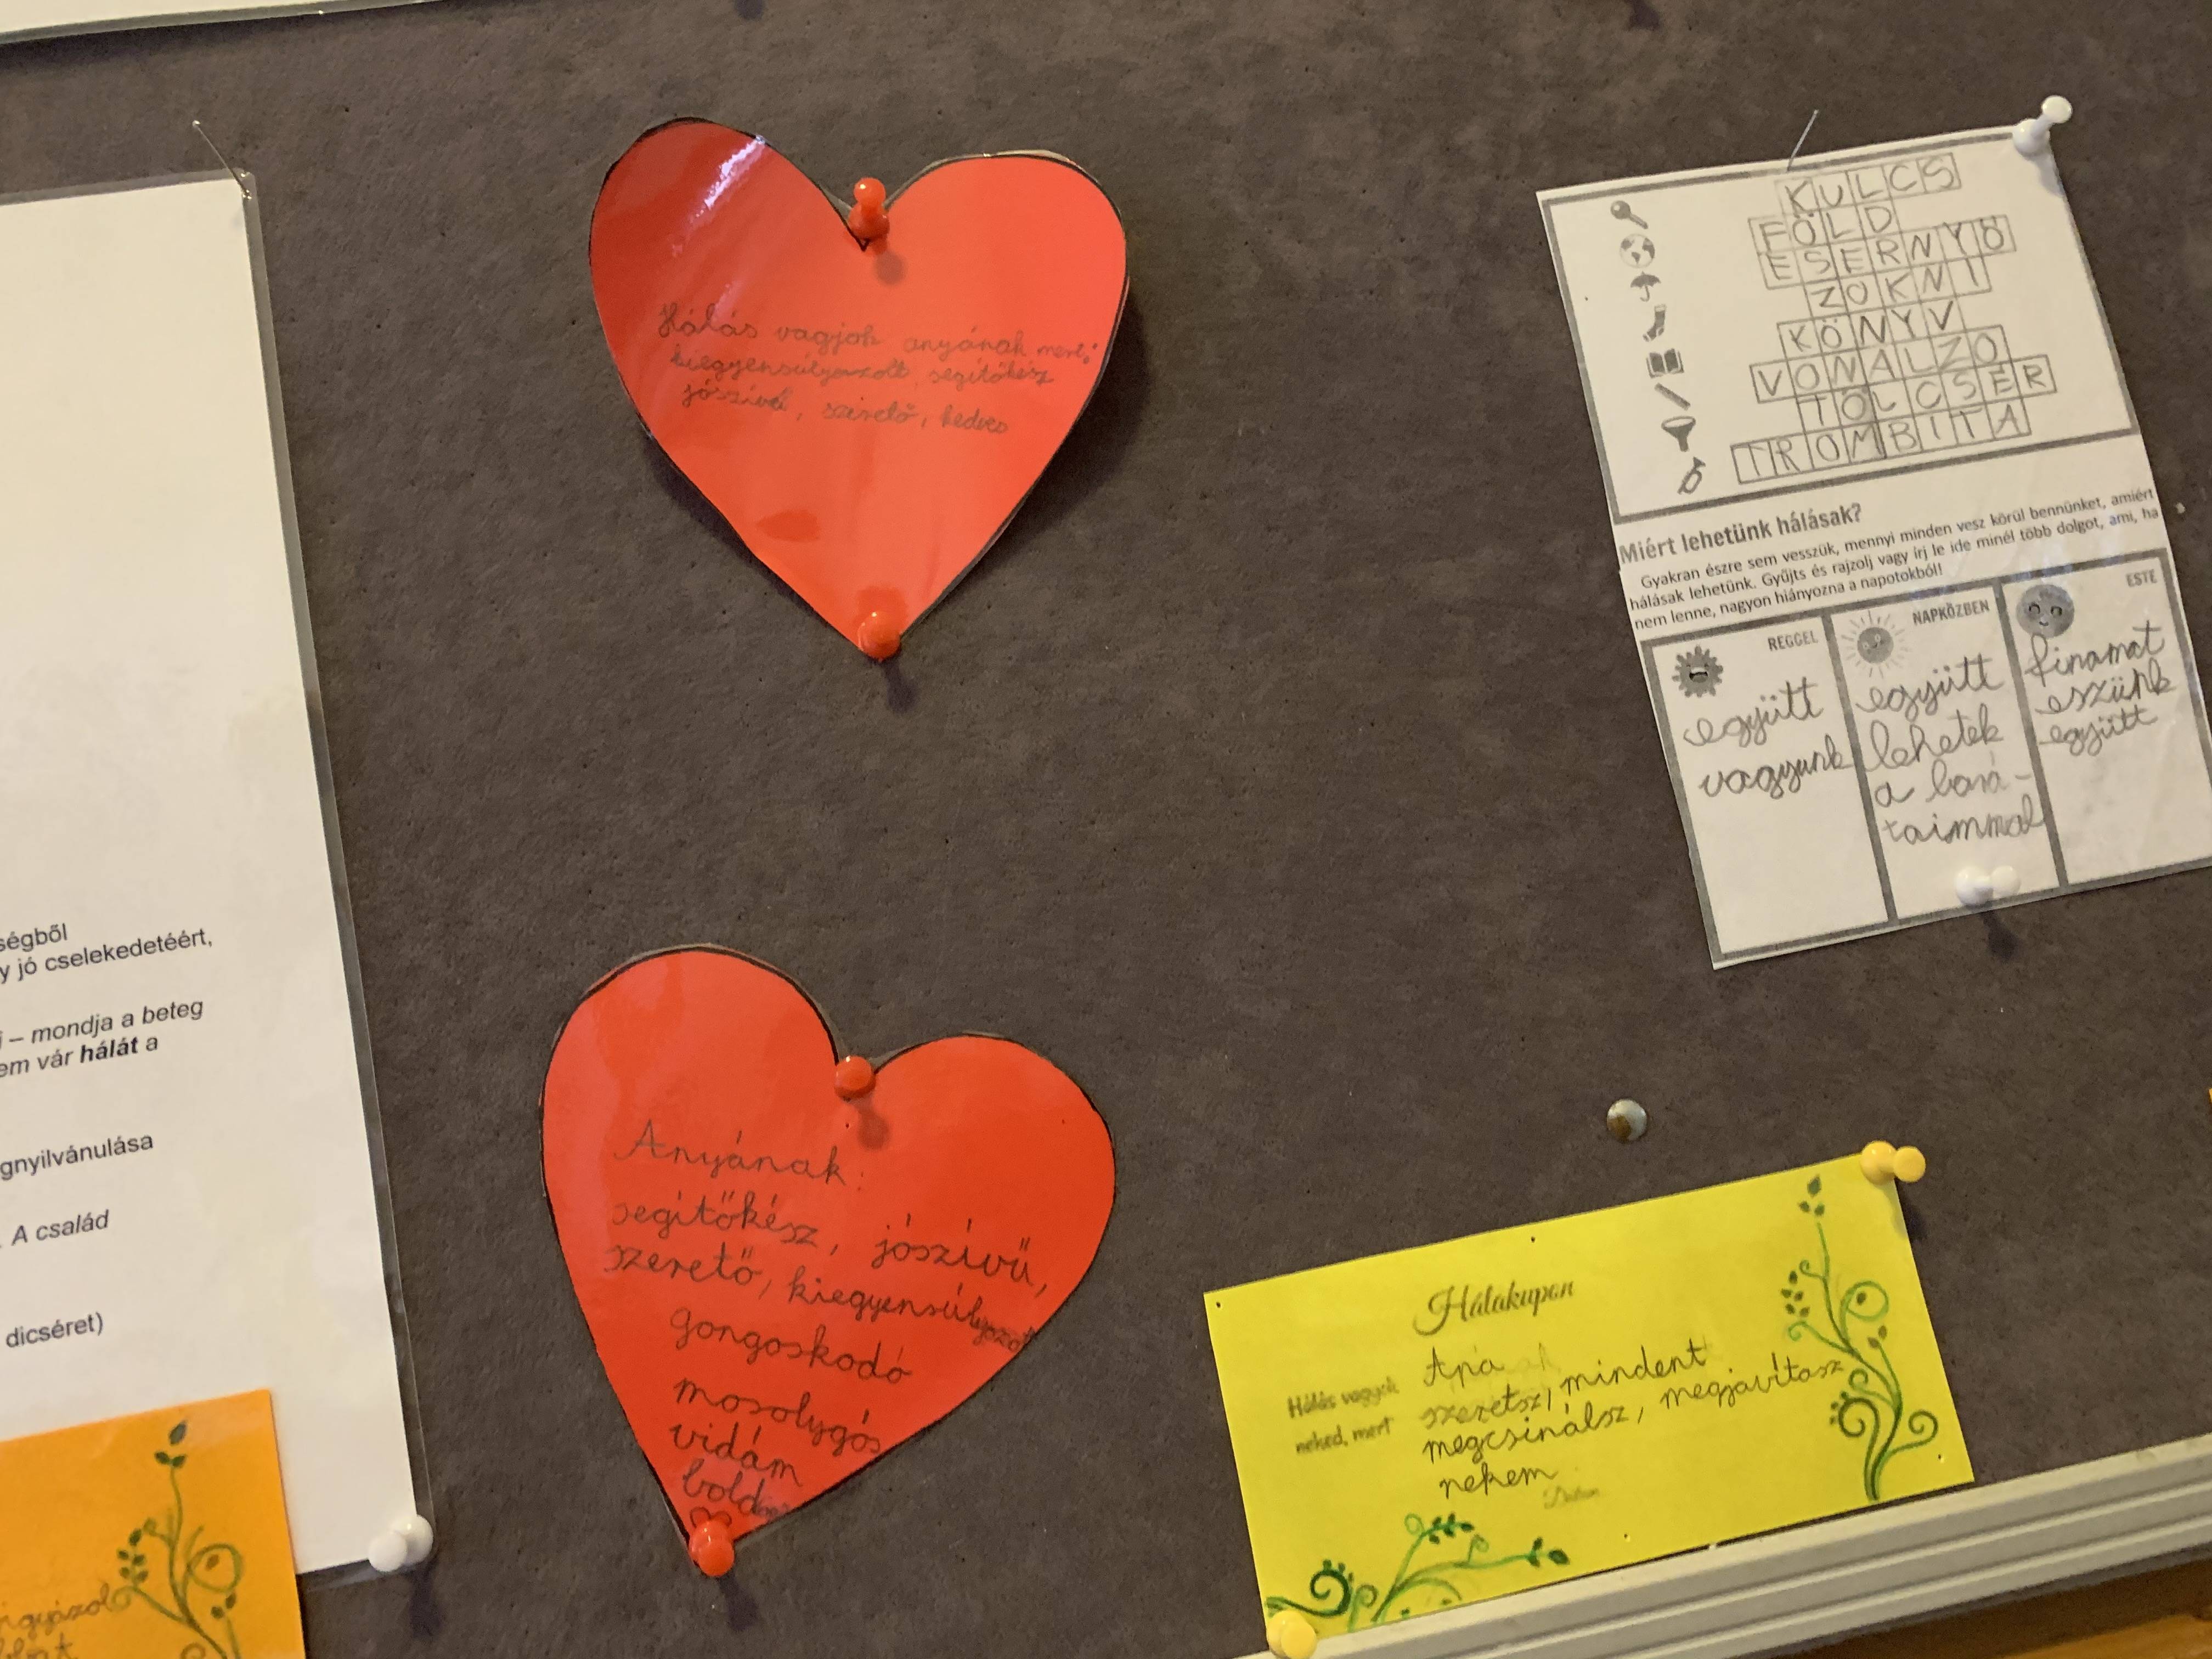 ségből
y jó cselekedetéért,
– mondja a beteg
em vár hálát a
gnyilvánulása
A család
dicséret)
Hálás vagjok anyának mert:
kiegyensúlyozott, segítőkész
jószívű, szerető, kedves
Anyának:
segítőkész, jószívű,
szerető, kiegyensúlyozott
gongoskodó
mosolygós
vidám
KULCS
FÖLD
ESERNYŐ
ZOKNI
KÖNYV
VONALZÓ
TÖLCSÉR
TROMBITA
Miért lehetünk hálásak?
Gyakran észre sem vesszük, mennyi minden vesz körül bennünket, amiért
hálásak lehetünk. Gyűjts és rajzolj vagy írj le ide minél több dolgot, ami, ha
nem lenne, nagyon hiányozna a napotokból!
REGGEL
együtt
vagyunk
NAPKÖZBEN
együtt
lehetek
a bará-
taimmal
ESTE
finamat
eszünk
együtt
Hálakupon
Hálás vagyok
neked, mert
Apa
szeretsz, mindent
megcsinálsz, megjavítasz
nekem